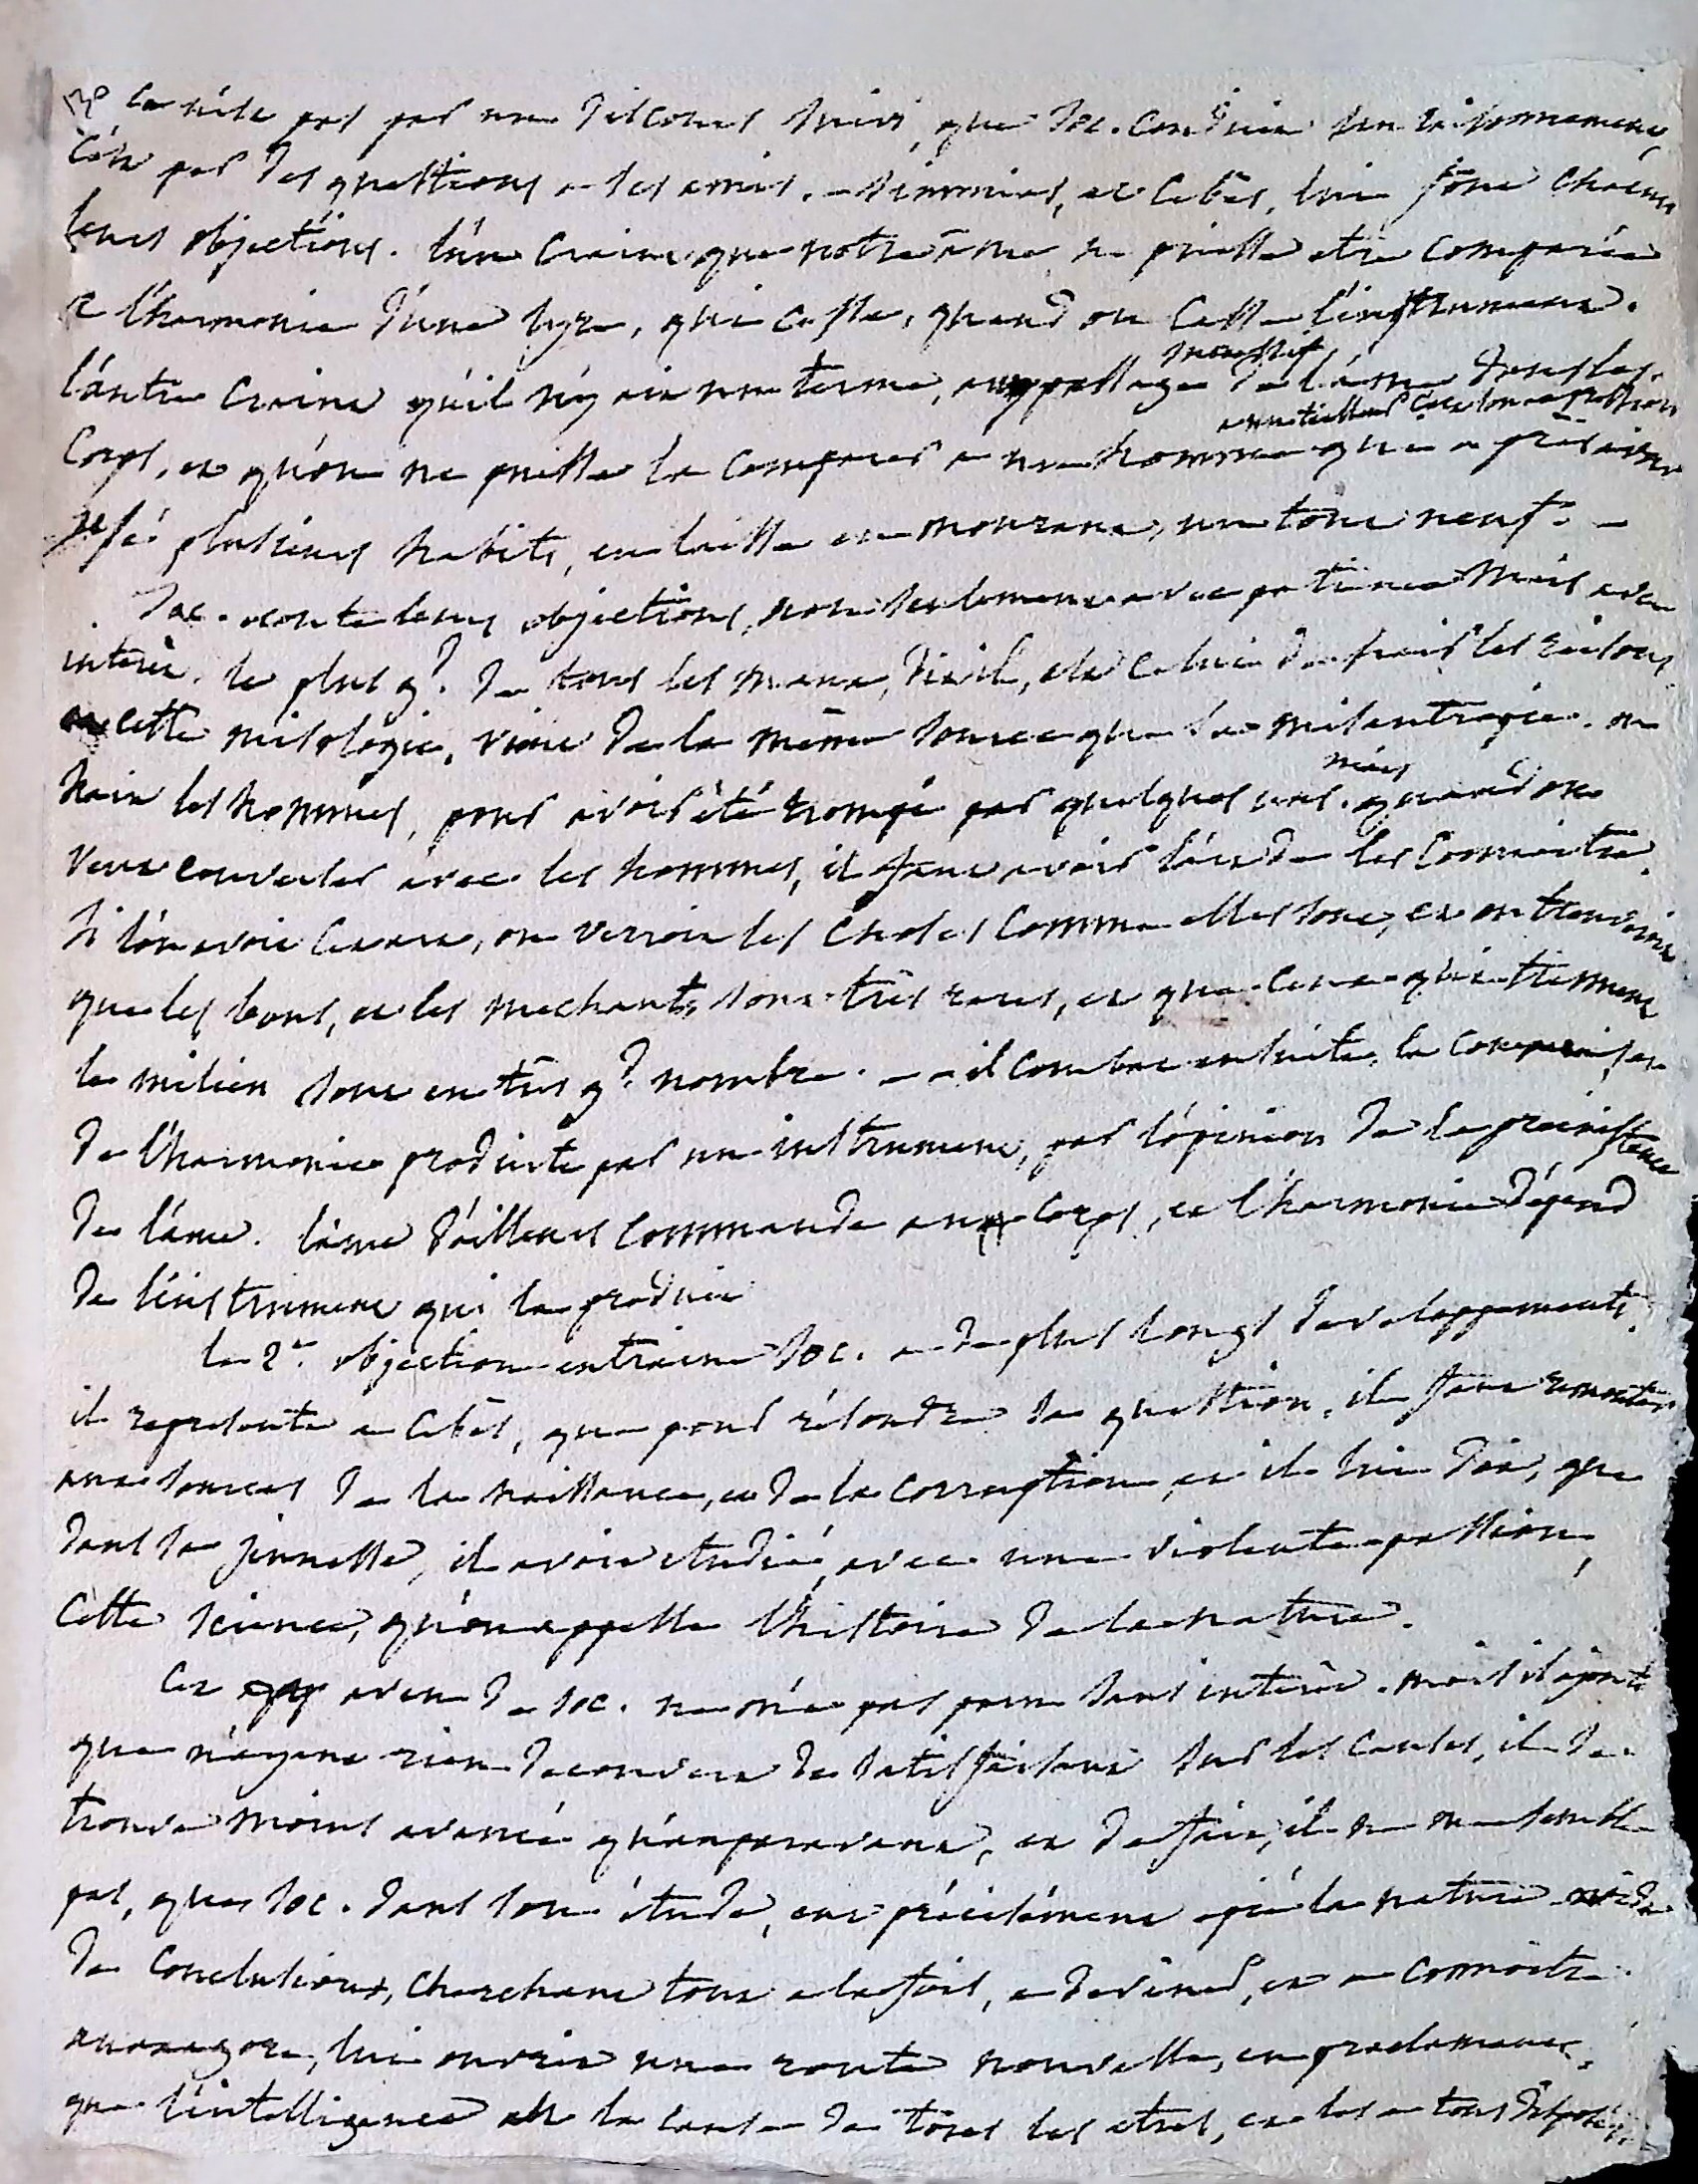 ce n'est pas par un discours suivi, que Soc. conduit son raisonnement,
c'est par des questions a ses amis. - Simmias, et Cebès, lui font chacun
leurs objections. l'un craint que notre âme ne puisse etre comparée
a l'harmonie d'une lyre, qui cesse, quand on casse l'instrument.
l'autre craint qu'il n'y ait un terme, au passage successif de l'ame dans les
corps, et qu'on ne puisse la comparer a un homme qui après avoir
usé plusieurs habits, en laisse en mourant, un tout neuf. -
Soc. ecoute leurs objections, non seulement avec patience mais avec
interêt. le plus gd. de tous les maux, dit il, est celui de haïr les raisons
cette misologie, vient de la même source que la misantropie. on
hait les hommes, pour avoir été trompé par quelques uns. mais quand on
veut converser avec les hommes, il faut avoir l'art de les connoitre.
Si l'on avoit cet art, on verroit les choses comme elles sont, et on trouveroit
que les bons, et les mechants, sont très rares, et que ceux qui tiennent
le milieu sont en très gd. nombre. - - il combat ensuite, la comparaison
de l'harmonie produite par un instrument, par l'opinion de la préexistence
de l'ame. l'ame d'ailleurs commande au corps, et l'harmonie dépend
de l'instrument qui la produit
la 2e. objection entraine Soc. a de plus longs developpements.
il represente a Cebès, que pour résoudre sa question, il faut remonter
aux sources de la naissance, et de la corruption, et il lui dit, que
dans sa jeunesse, il avoit etudié, avec une violente passion,
cette science, qu'on appelle l'histoire de la nature.
Cet aveu de Soc. ne m'est pas paru sans interêt. mais il ajoute
que n'ayant rien decouvert de satisfaisant sur les causes, il se
trouve moins avancé qu'auparavant, et de fait, il ne me semble
pas, que Soc. dans son étude, eut précisément épié la nature
de conclusions, cherchant tout a la fois, a deviner, et a connoitre.
anaxagore, lui ouvrit une route nouvelle, en proclamant,
que l'intelligence est la cause de tous les etres, et les a tous disposés